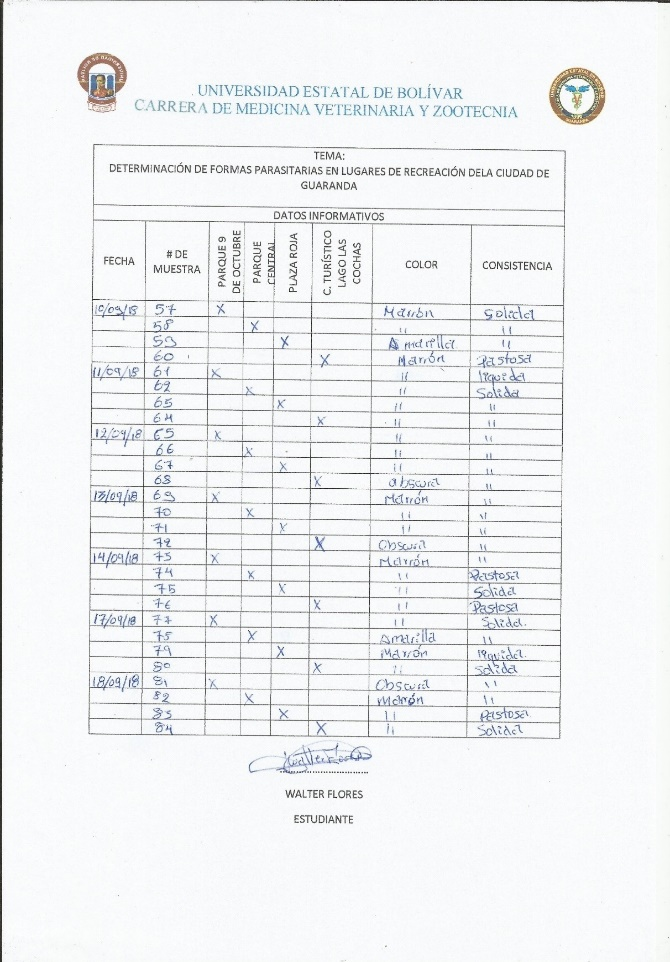 UNIVERSIDAD ESTATAL DE BOLÍVAR
CARRERA DE MEDICINA VETERINARIA Y ZOOTECNIA
TEMA:
DETERMINACIÓN DE FORMAS PARASITARIAS EN LUGARES DE RECREACIÓN DELA CIUDAD DE
GUARANDA
DATOS INFORMATIVOS
FECHA # DE MUESTRA PARQUE 9 DE OCTUBRE PARQUE CENTRAL PLAZA ROJA C. TURÍSTICO LAGO LAS COCHAS COLOR CONSISTENCIA
10/09/18 57 X Marrón Solida
58 X " "
59 X Amarilla "
60 X Marrón Pastosa
11/09/18 61 X " liquida
62 X " Solida
65 X " "
64 X " "
12/09/18 65 X " "
66 X " "
67 X " "
68 X obscura "
13/09/18 69 X Marrón "
70 X " "
71 X " "
72 X Obscura "
14/09/18 73 X Marrón "
74 X " Pastosa
75 X " Solida
76 X " Pastosa
17/09/18 77 X " Solida.
78 X Amarilla "
79 X Marrón liquida.
80 X " Solida
18/09/18 81 X Obscura "
82 X Marrón "
83 X " Pastosa
84 X " Solida
WALTER FLORES
ESTUDIANTE